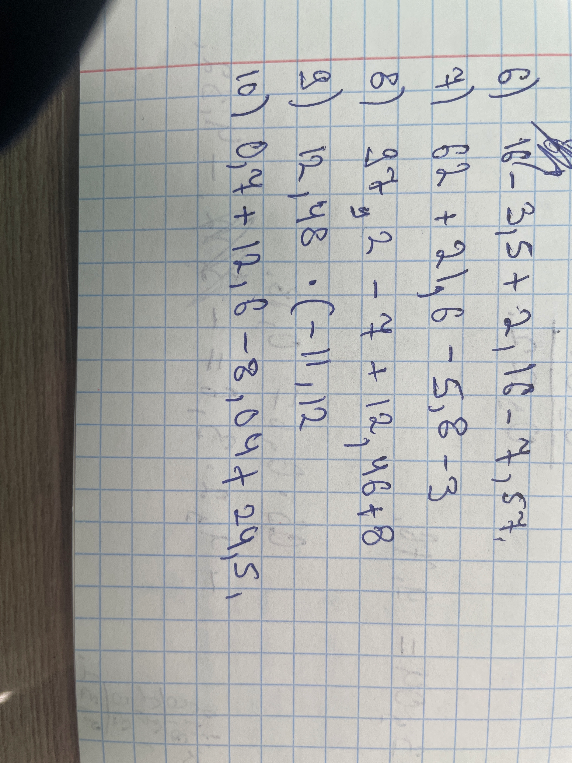 6) 16 - 3,5 + 2,16 - 7,57,
7) 62 + 21,6 - 5,8 - 3
8) 97,2 - 7 + 12,46 + 8
9) 12,48 · (-11,12
10) 0,4 + 12,6 - 8,04 + 24,5,